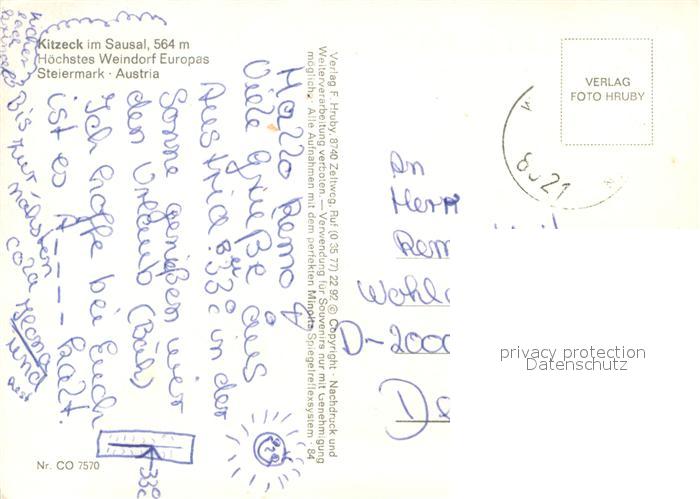 Kitzeck im Sausal, 564 m
Höchstes Weindorf Europas
Steiermark · Austria
Hallo Remo
Viele Grüße aus
Austria. Bei 33°C in der
Sonne genießen wir
den Urlaub (Bäh)
Ich hoffe bei Euch
ist es A---- kalt.
Bis zur nächsten
und
33°C
Nr. CO 7570
Verlag F. Hruby, 8740 Zeltweg, Ruf (0 35 77) 22 92 © Copyright - Nachdruck und
Weiterverarbeitung verboten. — Verwendung für Souvenirs nur mit Genehmigung
möglich. · Alle Aufnahmen mit dem perfekten Minolta Spiegelreflexsystem · 84
VERLAG
FOTO HRUBY
8521
An
Herr
Rem
Wohl
D-2000
De
privacy protection
Datenschutz